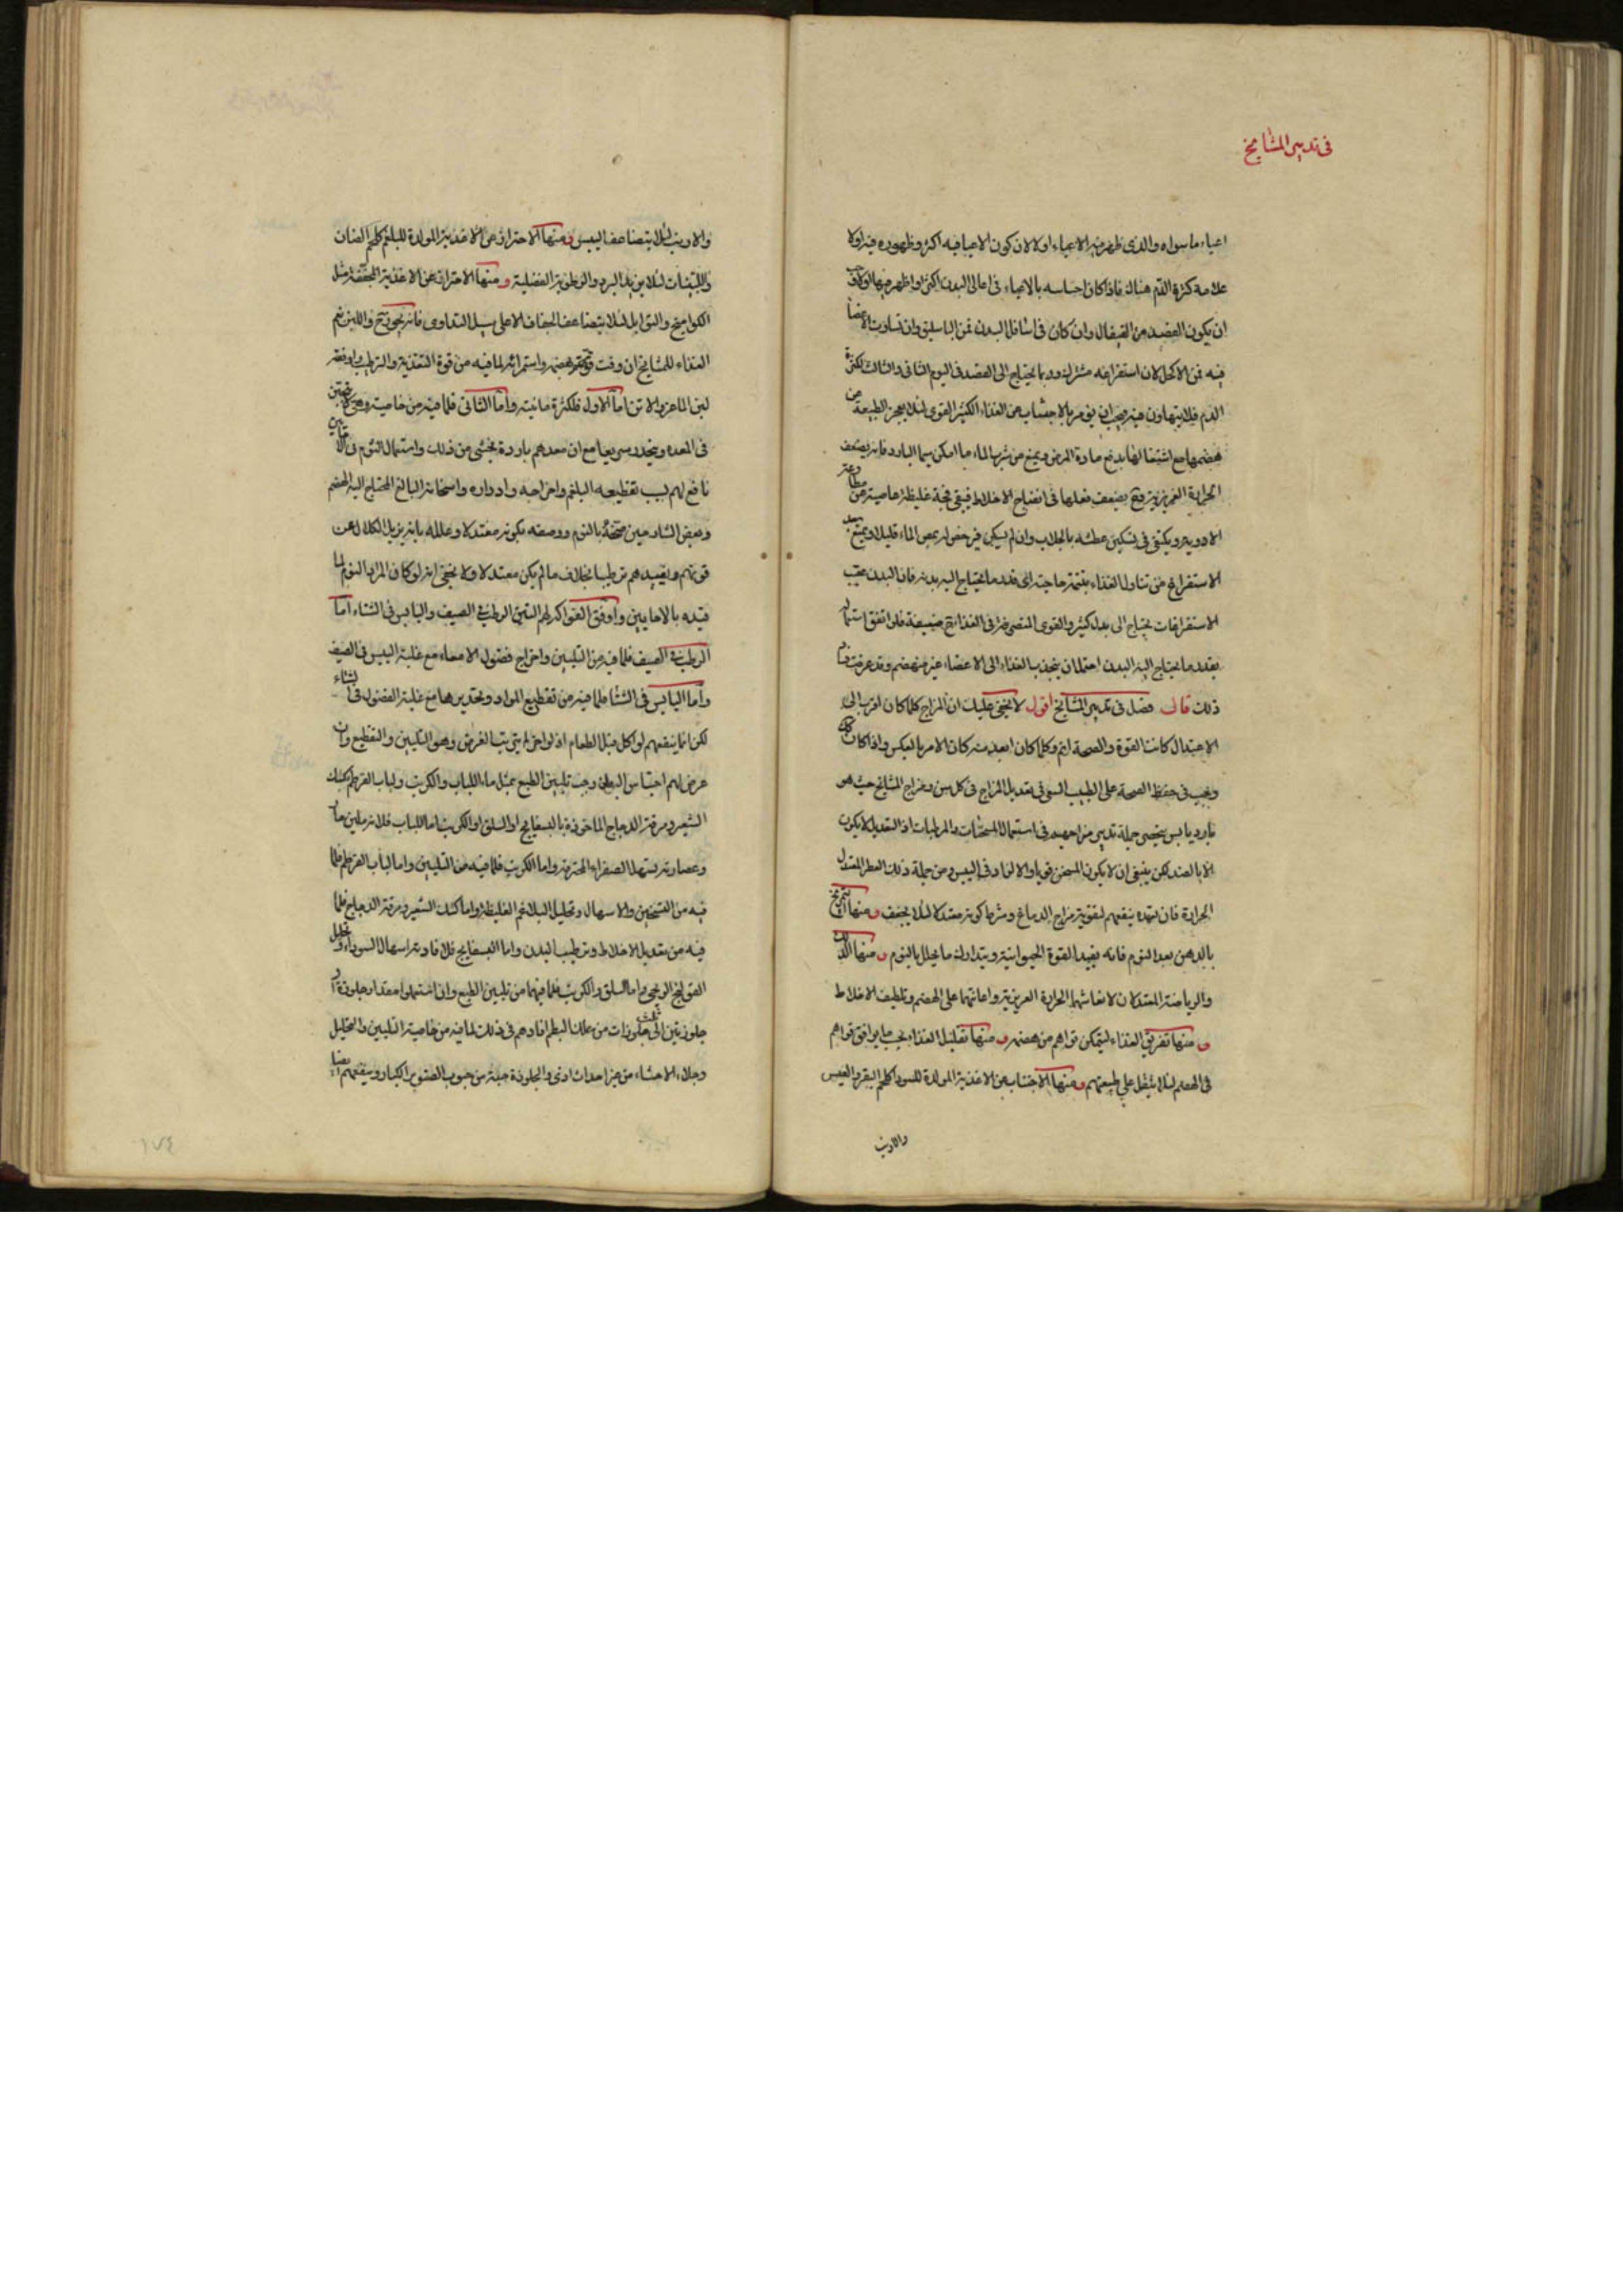 فى تدبير المشايخ
اعياء ما سواه والذى ظهر فيه الاعياء اولا لان كون الاعيا فيه اكثر وظهوره فيه اولا
علامة كثرة الدم هناك فاذا كان احساسه بالاعياء فى اعالى البدن اكثر او اظهر فيها اولا وجب
ان يكون الفصد من القيفال وان كان فى اسافل البدن فمن الباسليق وان تساوت الاعضا
فيه فمن الاكحل لان استفراغه مشترك وربما يحتاج الى الفصد فى اليوم الثانى والثالث لكثرة
الدم فلا يتهاون فيه ويجب ان يؤمر بالاجتناب عن الغذاء الكثير القوى لئلا يعجز الطبيعة عن
هضمها مع اشتغالها بدفع مادة المرض ويمنع من شرب الماء ما امكن سيما البارد فانه يضعف
الحرارة الغريزية فح يضعف فعلها فى انضاج الاخلاط فيبقى فجة غليظة عاصية عن
الادوية ويكتفى فى تسكين عطشه بالجلاب وان لم يسكن فيرخص له بمص الماء قليلا ويمنع بعد
الاستفراغ من تناول الغذاء بتتمة حاجته الى قدر ما يحتاج اليه بدنه فان البدن عقيب
الاستفراغات يحتاج الى بدل كثير والقوى المتصرفة فى الغذا تح ضعيفة فلو اتفق استمال
بقدر ما يحتاج اليه البدن احتمل ان ينجذب الغذاء الى الاعضاء غير منهضم وقد عرفت
ذلك قال فصل فى تدبير المشايخ اقول لا يخفى عليك ان المزاج كلما كان اقرب الى
الاعتدال كانت القوة والصحة اتم وكلما كان ابعد منه كان الامر بالعكس واذا كان
وجب فى حفظ الصحة على الطبيب السعى فى تعديل المزاج فى كل سن ومزاج المشايخ حيث هو
بارد يابس ينحصر جملة تدبير مزاجهم فى استعمال المسخنات والمرطبات اذ التعديل لا يكون
الا بالضد لكن ينبغى ان لا يكون المسخن قويا والا لزاد فى اليبس ومن جملة ذلك العطر المعتدل
الحرارة فان تعهده ينفعهم لتقوية مزاج الدماغ وشرط كونه معتدلا لئلا يجفف ومنها التمريخ
بالدهن بعد النوم فانه يفيد القوة الحيوانية ويتدارك ما تحلل بالنوم ومنها الدلك
والرياضة المعتدلان لانعاشهما الحرارة الغريزية واعانتهما على الهضم وتلطيف الاخلاط
ومنها تفريق الغذاء ليتمكن قواهم من هضمه ومنها تقليل الغذاء بحسب ما يوافق قواهم
فى الهضم لئلا يثقل على طبيعتهم ومنها الاجتناب عن الاغذية المولدة للسودا كلحم البقر والعدس
والارنب
والارنب لئلا يتضاعف اليبس ومنها الاحتراز عن الاغذية المولدة للبلغم كلحم الضان
واللبنيات لئلا يزيد البرد والرطوبة الفضلية ومنها الاحتراز عن الاغذية المجففة مثل
الكوامخ والتوابل لئلا يتضاعف الجفاف الا على سبيل التداوى فانه يجوز تح واللبن نعم
الغذاء للمشايخ ان وفت قوتهم بهضمه واستمرائه لما فيه من قوة التغذية والترطيب واوفقه
لبن الماعز والاتن اما الاول فلكثرة مائيته واما الثانى فلما فيه من خاصية وهى
فى المعدة وينحدر سريعا مع ان معدهم باردة يخشى من ذلك واستعمال الثوم فى
نافع لهم لسبب تقطيعه البلغم واخراجه وادراره واسخانه البالغ المحتاج اليه الهضم
وبعض الشارحين صحفه بالنوم ووصفه بكونه معتدلا وعلله بانه يزيل الكلال عن
قوتهم ويفيدهم ترطيبا بخلاف ما لم يكن معتدلا ولا يخفى انه لو كان المراد النوم لما
قيده بالاحايين واوفق الفواكه لهم التين الرطب فى الصيف واليابس فى الشتاء اما
الرطب فى الصيف فلما فيه من التليين واخراج فضول الامعاء مع غلبة اليبس فى الصيف
واما اليابس فى الشتا فلما فيه من تقطيع المواد وتحديرها مع غلبة الفضول فى الشتاء
لكن انما ينفعهم لو اكل قبل الطعام اذ لو اخر لم يترتب الغرض وهو التليين والتقطيع وان
عرض لهم احتباس البطن وجب تليين الطبع بمثل ماء اللبلاب والكرنب ولباب القرطم كشك
الشعير ومرقة الدجاج الماخوذة بالبسفايج او السلق او الكرنب اما اللبلاب فلانه ملين
وعصارته تسهل الصفراء المحترقة واما الكرنب فلما فيه من التليين واما لباب القرطم فلما
فيه من التسخين والاسهال وتحليل البلاغم الغليظة واما كشك الشعير ومرقة الدجاج فلما
فيه من تعديل الاخلاط وترطيب البدن واما البسفايج فلافادته اسهال السوداء وتحليل
القولنج الريحى واما السلق والكرنب فلما فيهما من تليين الطبع وان استعملوا مقدار جلوزة او
جلوزتين الى ثلث جلوزات من علك البطم افادهم فى ذلك لما فيه من خاصية التليين والتحليل
وجلاء الاحشاء من غير احداث اذى والجلوزة حبة من حبوب الصنوبر الكبار وينفعهم ايضا
١٧٤